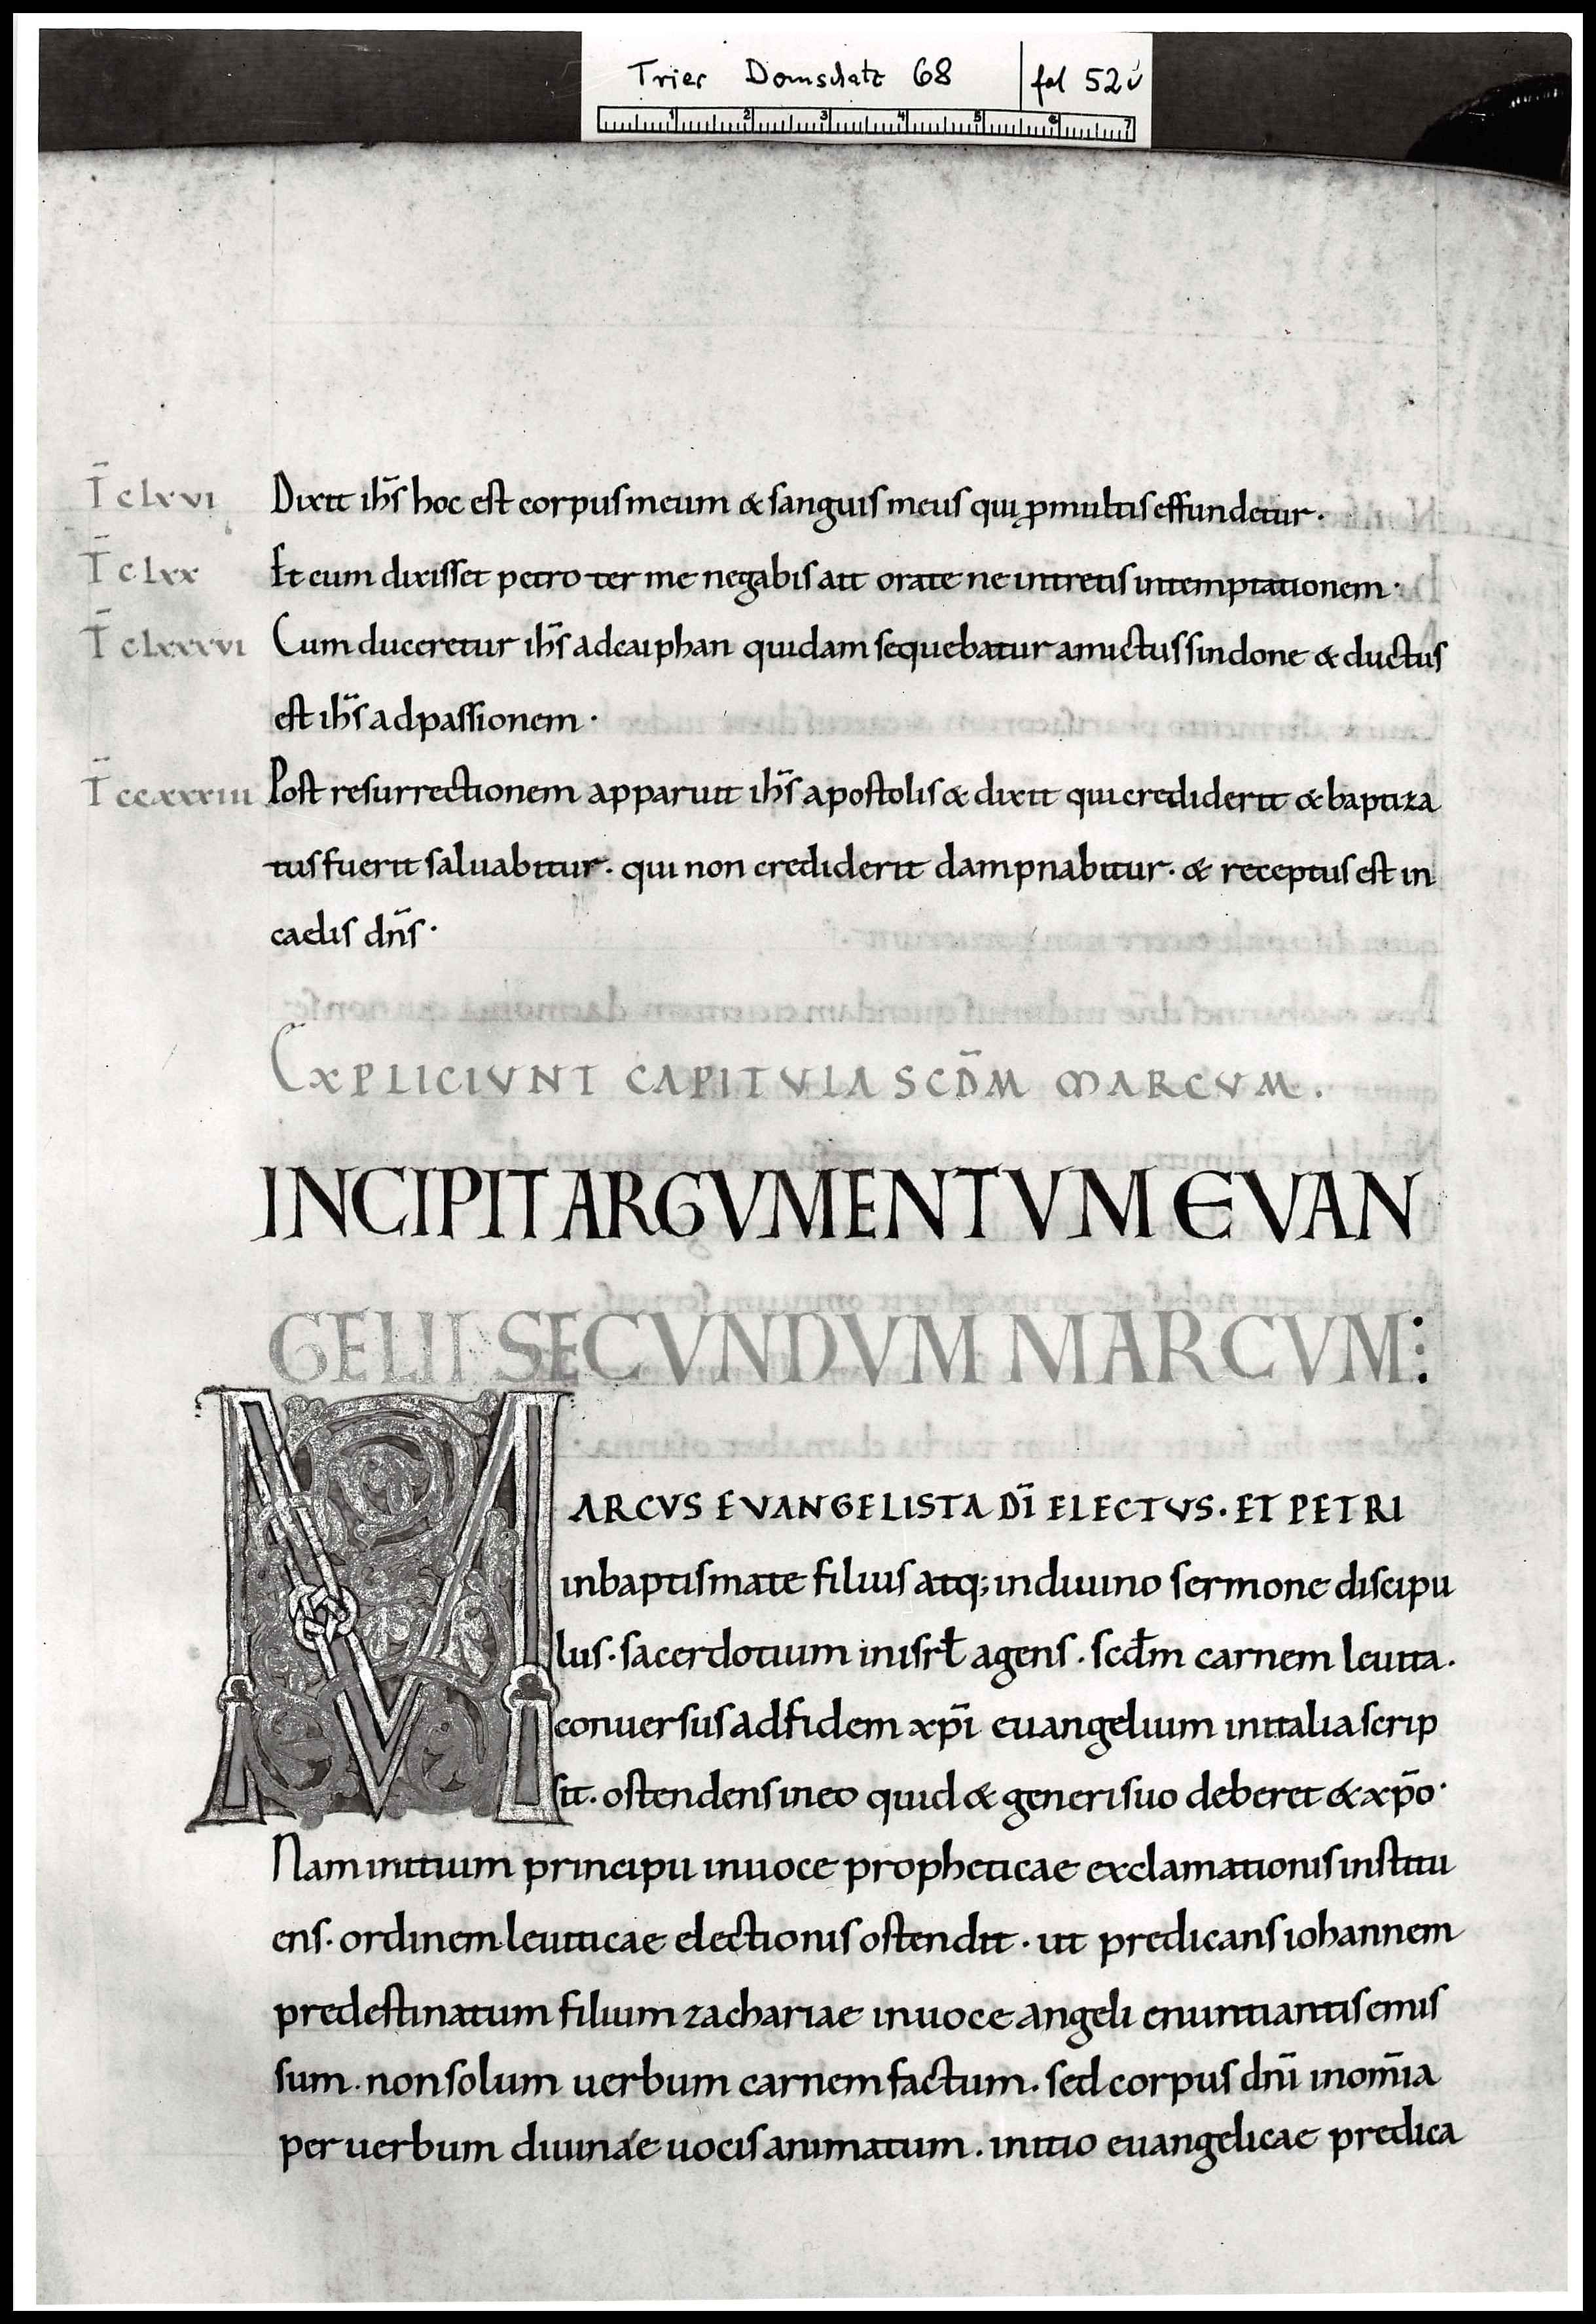 Trier Domschatz 68 fol 52v
1 2 3 4 5 6 7
T̄ clxvi Dixit ihs̄ hoc est corpus meum & sanguis meus qui ꝓmultis effundetur·
T̄ clxx Et cum dixisset petro ter me negabis ait orate ne intretis intemptationem·
T̄ clxxxvi Cum duceretur ihs̄ adcaiphan quidam sequebatur amictus sindone & ductus
est ihs̄ adpassionem·
T̄ ccxxxiii Post resurrectionem apparuit ihs̄ apostolis & dixit qui crediderit & baptiza
tus fuerit saluabitur· qui non crediderit dampnabitur· & receptus est in
caelis dn̄s·
EXPLICIVNT CAPITVLA SCD̄M MARCVM.
INCIPIT ARGVMENTVM EVAN
GELII SECVNDVM MARCVM:
MARCVS EVANGELISTA DĪ ELECTVS· ET PETRI
inbaptismate filius atq; indiuino sermone discipu
lus· sacerdotium inisrł agens· scdm̄ carnem leuita·
conuersus adfidem xp̄i euangelium initalia scrip
sit· ostendens ineo quid & generi suo deberet & xp̄o·
Nam initium principii inuoce propheticae exclamationis institu
ens· ordinem leuiticae electionis ostendit· ut predicans iohannem
predestinatum filium zachariae inuoce angeli enuntiantis emis
sum· non solum uerbum carnem factum· sed corpus dnī inom̄ia
per uerbum diuinae uocis animatum· initio euangelicae predica